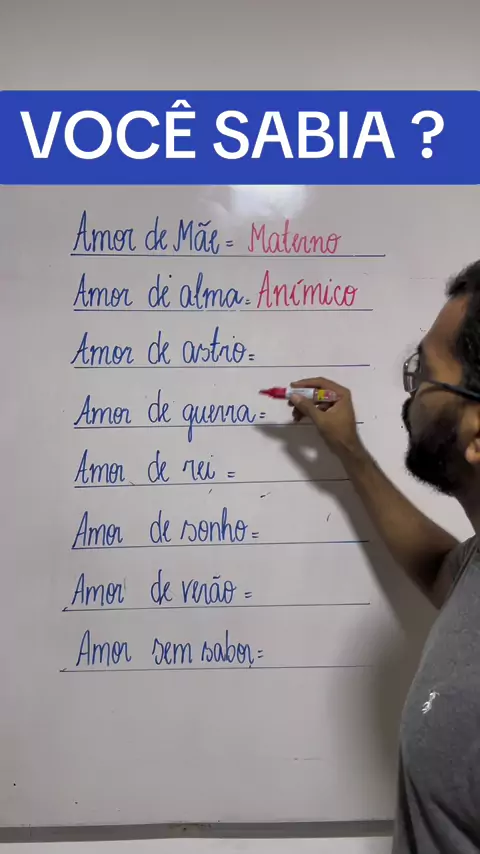 VOCÊ SABIA ?
Amor de Mãe = Materno
Amor de alma = Anímico
Amor de astro =
Amor de guerra =
Amor de rei =
Amor de sonho =
Amor de verão =
Amor sem sabor =